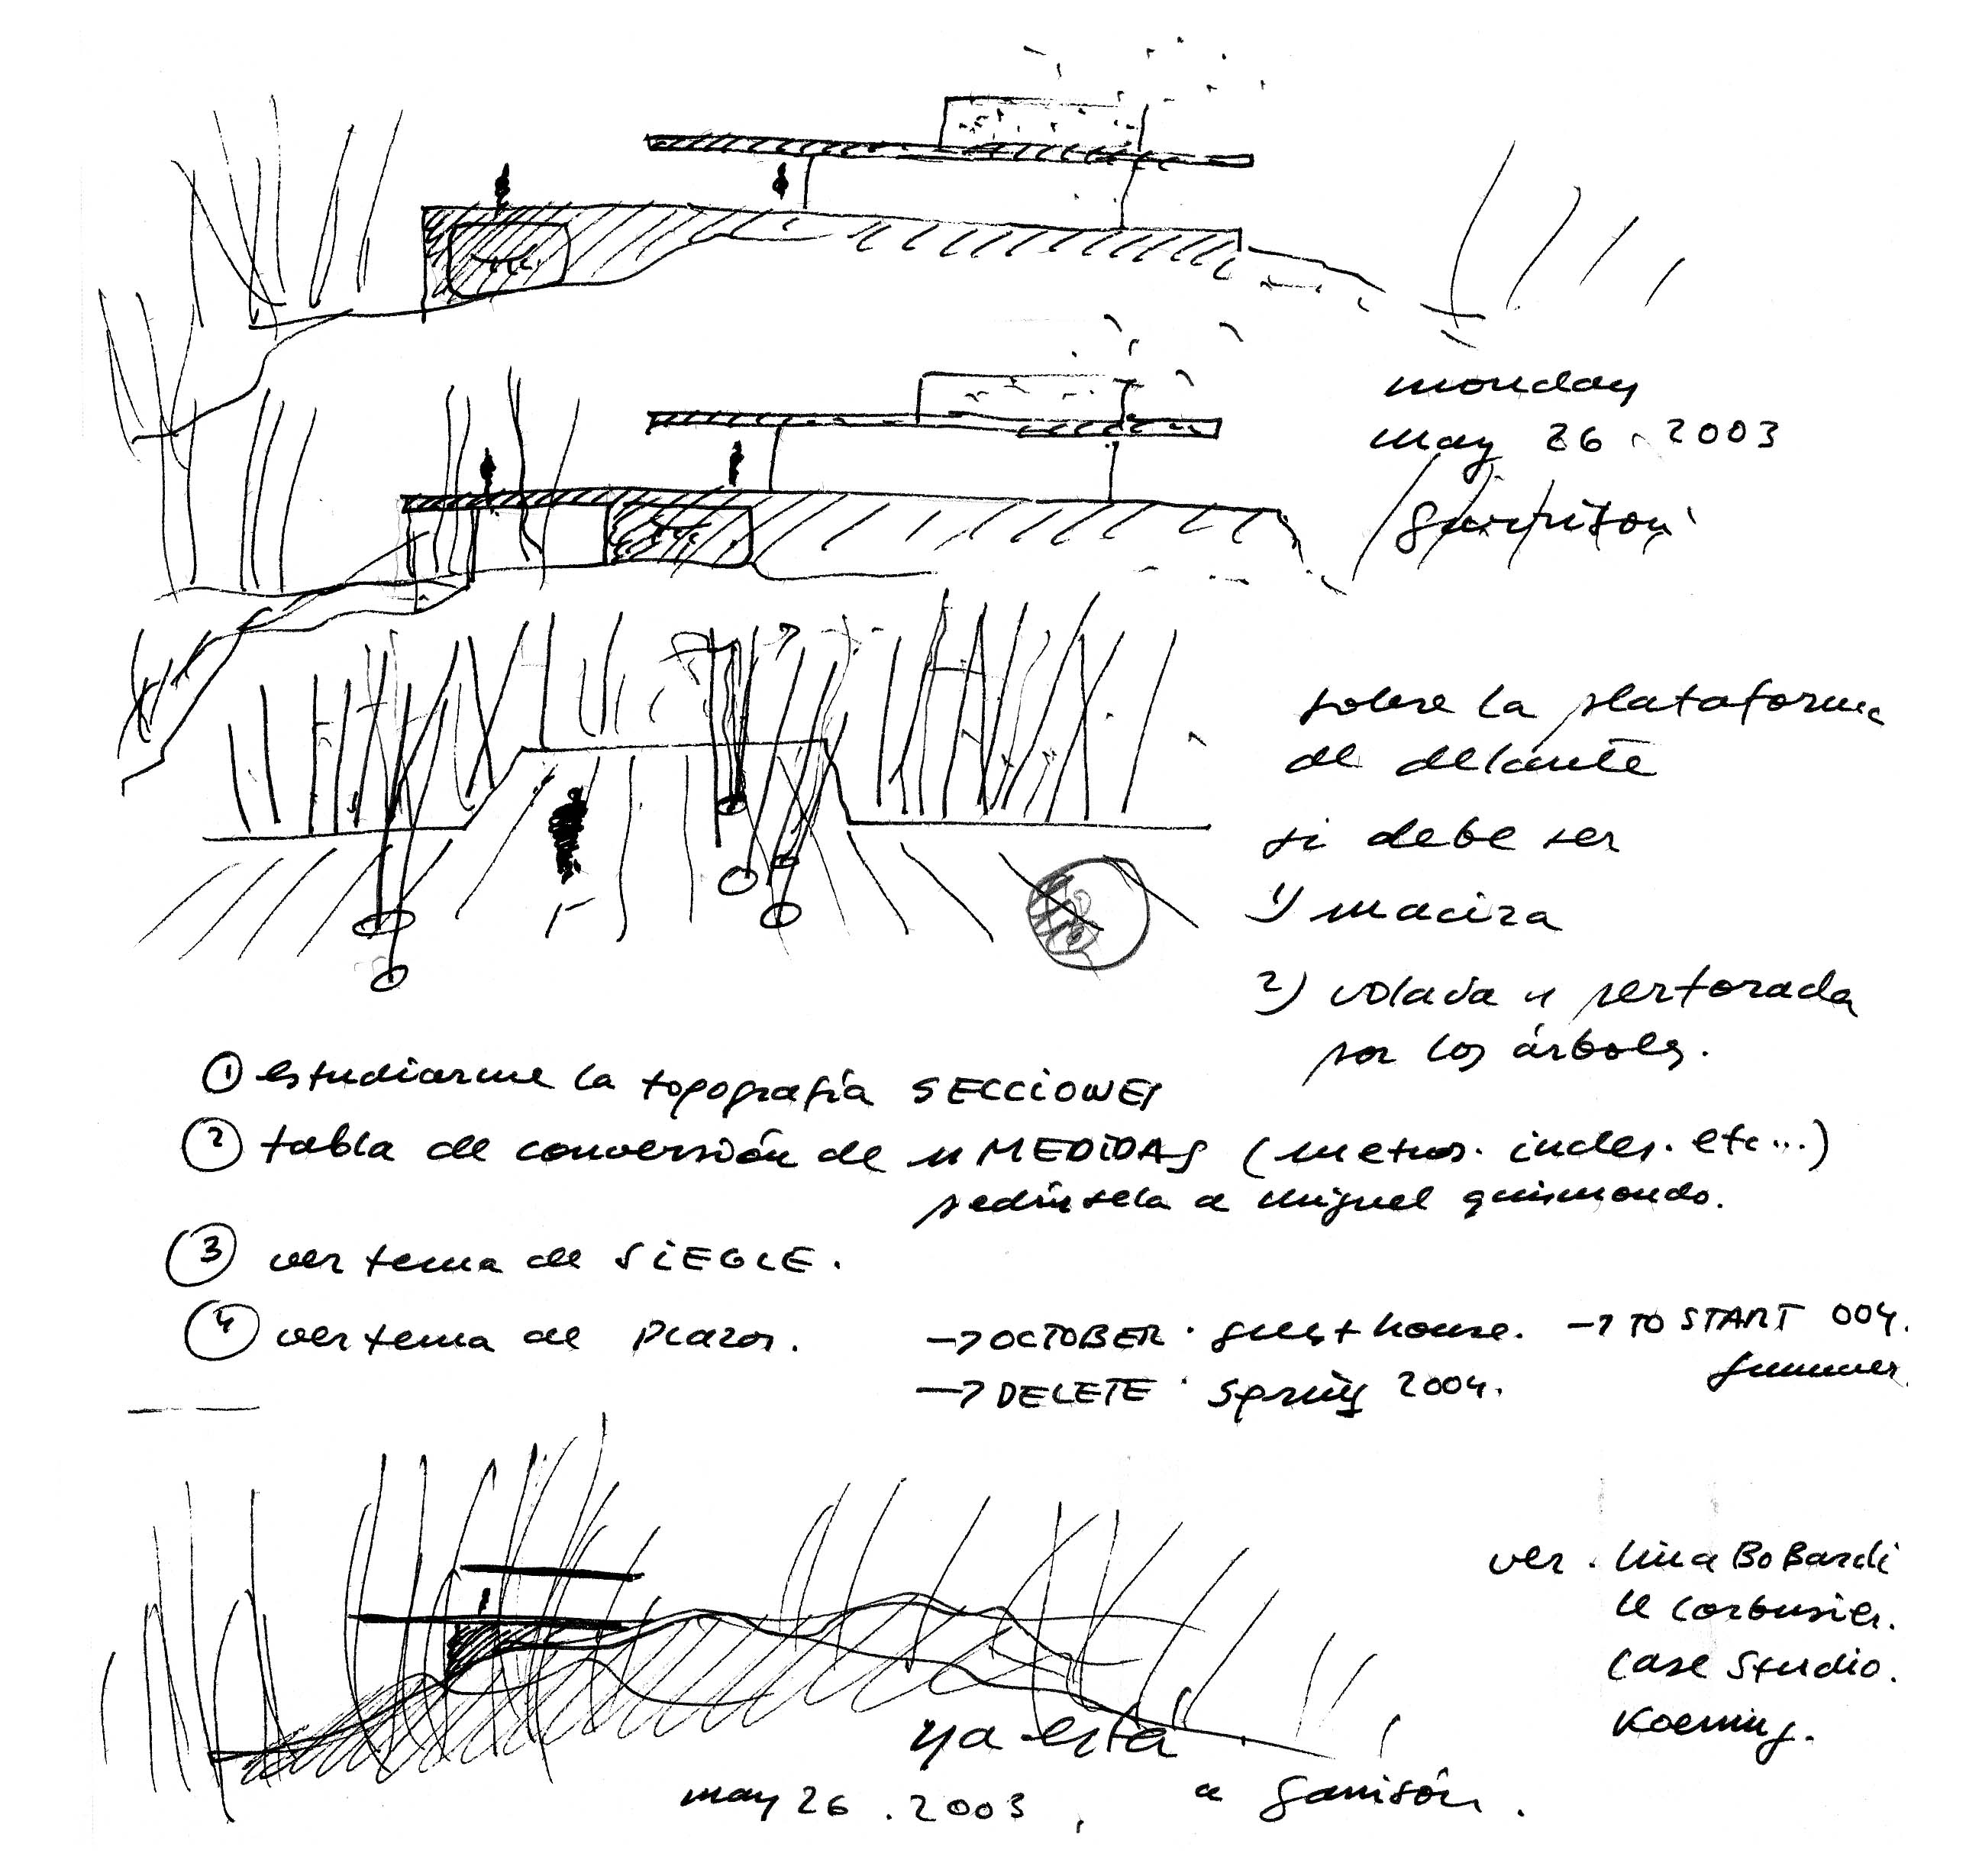 monday
may 26. 2003
garrison
sobre la plataforma
de delante
si debe ser
1) maciza
2) volada y perforada
por los árboles.
① estudiarme la topografía SECCIONES
② tabla de conversión de MEDIDAS (metros. inches. etc...)
pedírsela a miguel quismondo.
③ ver tema de SIEGLE.
④ ver tema de plazos. → OCTOBER · guest house. → TO START 004.
summer.
→ DELETE · Spring 2004.
ver. lina Bo Bardi
le corbusier.
Case Studio.
Koening.
ya está
may 26. 2003, a garrisón.